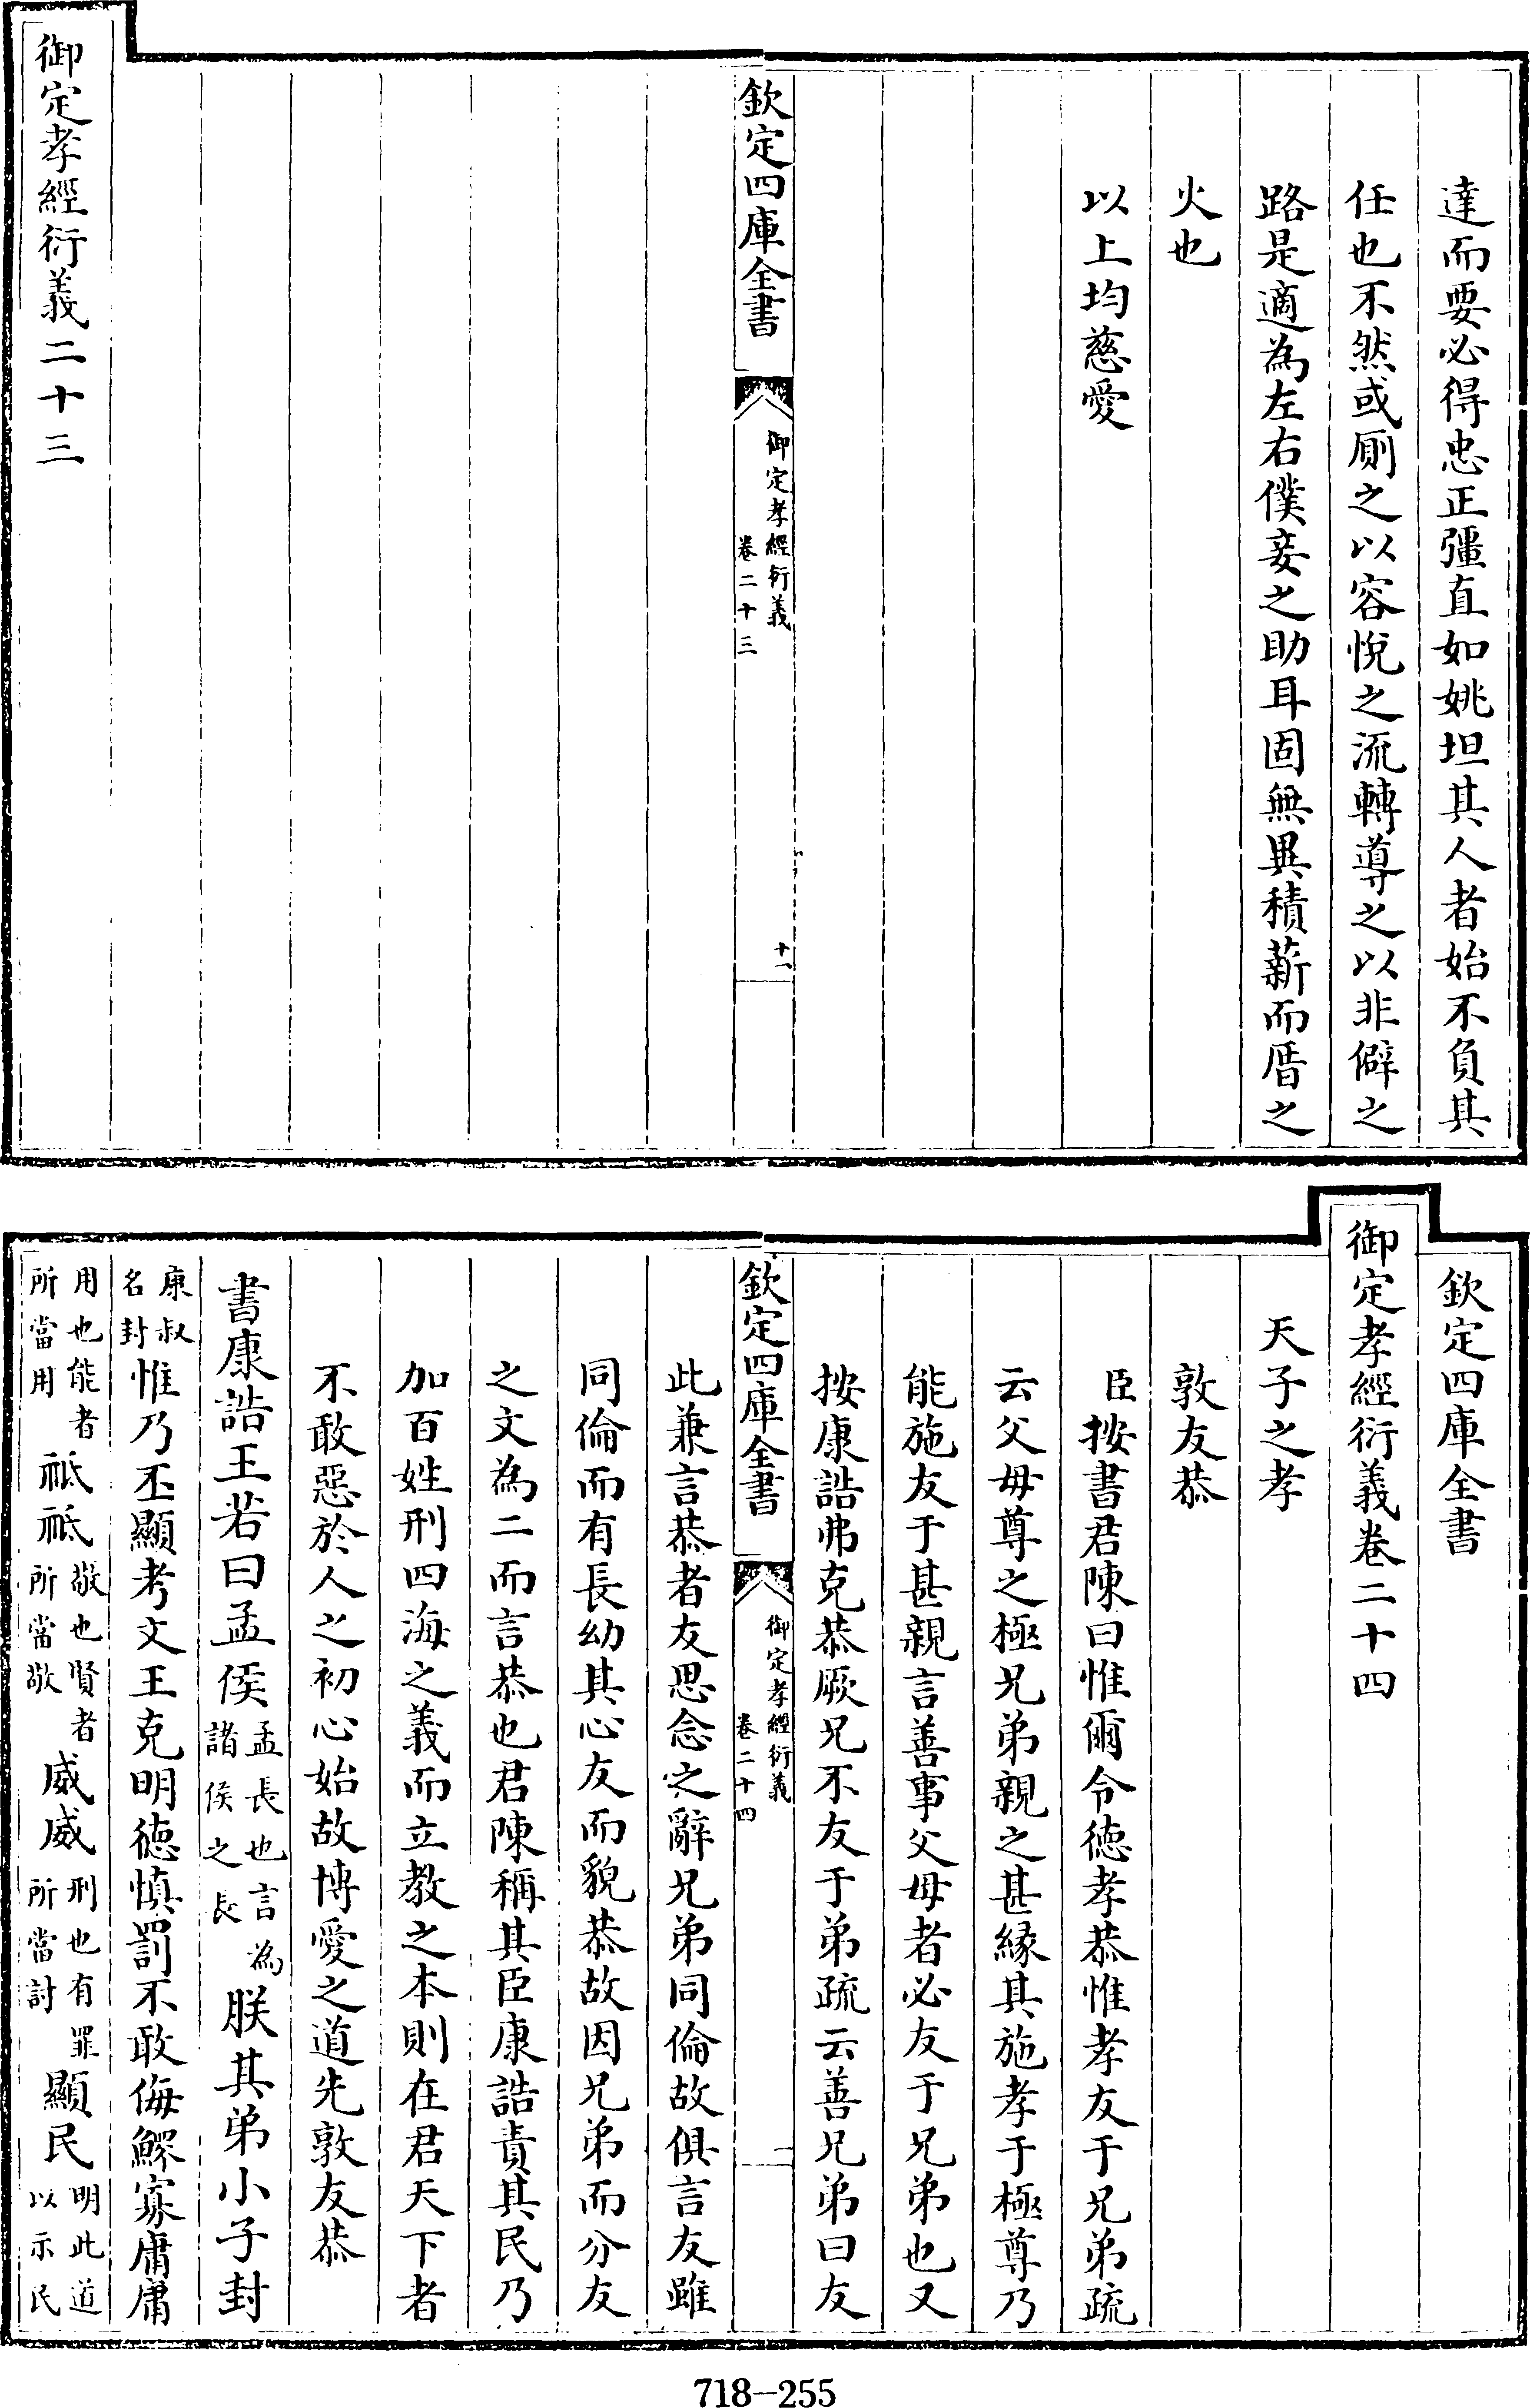 達而要必得忠正彊直如姚坦其人者始不負其
任也不然或廁之以容悅之流轉導之以非僻之
路是適為左右僕妾之助耳固無異積薪而厝之
火也
以上均慈愛
欽定四庫全書
御定孝經衍義
卷二十三
十一
御定孝經衍義二十三
欽定四庫全書
御定孝經衍義卷二十四
天子之孝
敦友恭
臣按書君陳曰惟爾令德孝恭惟孝友于兄弟疏
云父母尊之極兄弟親之甚緣其施孝于極尊乃
能施友于甚親言善事父母者必友于兄弟也又
按康誥弗克恭厥兄不友于弟疏云善兄弟曰友
欽定四庫全書
御定孝經衍義
卷二十四
一
此兼言恭者友思念之辭兄弟同倫故俱言友雖
同倫而有長幼其心友而貌恭故因兄弟而分友
之文為二而言恭也君陳稱其臣康誥責其民乃
加百姓刑四海之義而立教之本則在君天下者
不敢惡於人之初心始故博愛之道先敦友恭
書康誥王若曰孟侯孟長也言為諸侯之長朕其弟小子封
康叔名封惟乃丕顯考文王克明德慎罰不敢侮鰥寡庸庸
用也能者所當用祗祗敬也賢者所當敬威威刑也有罪所當討顯民明此道以示民
718-255